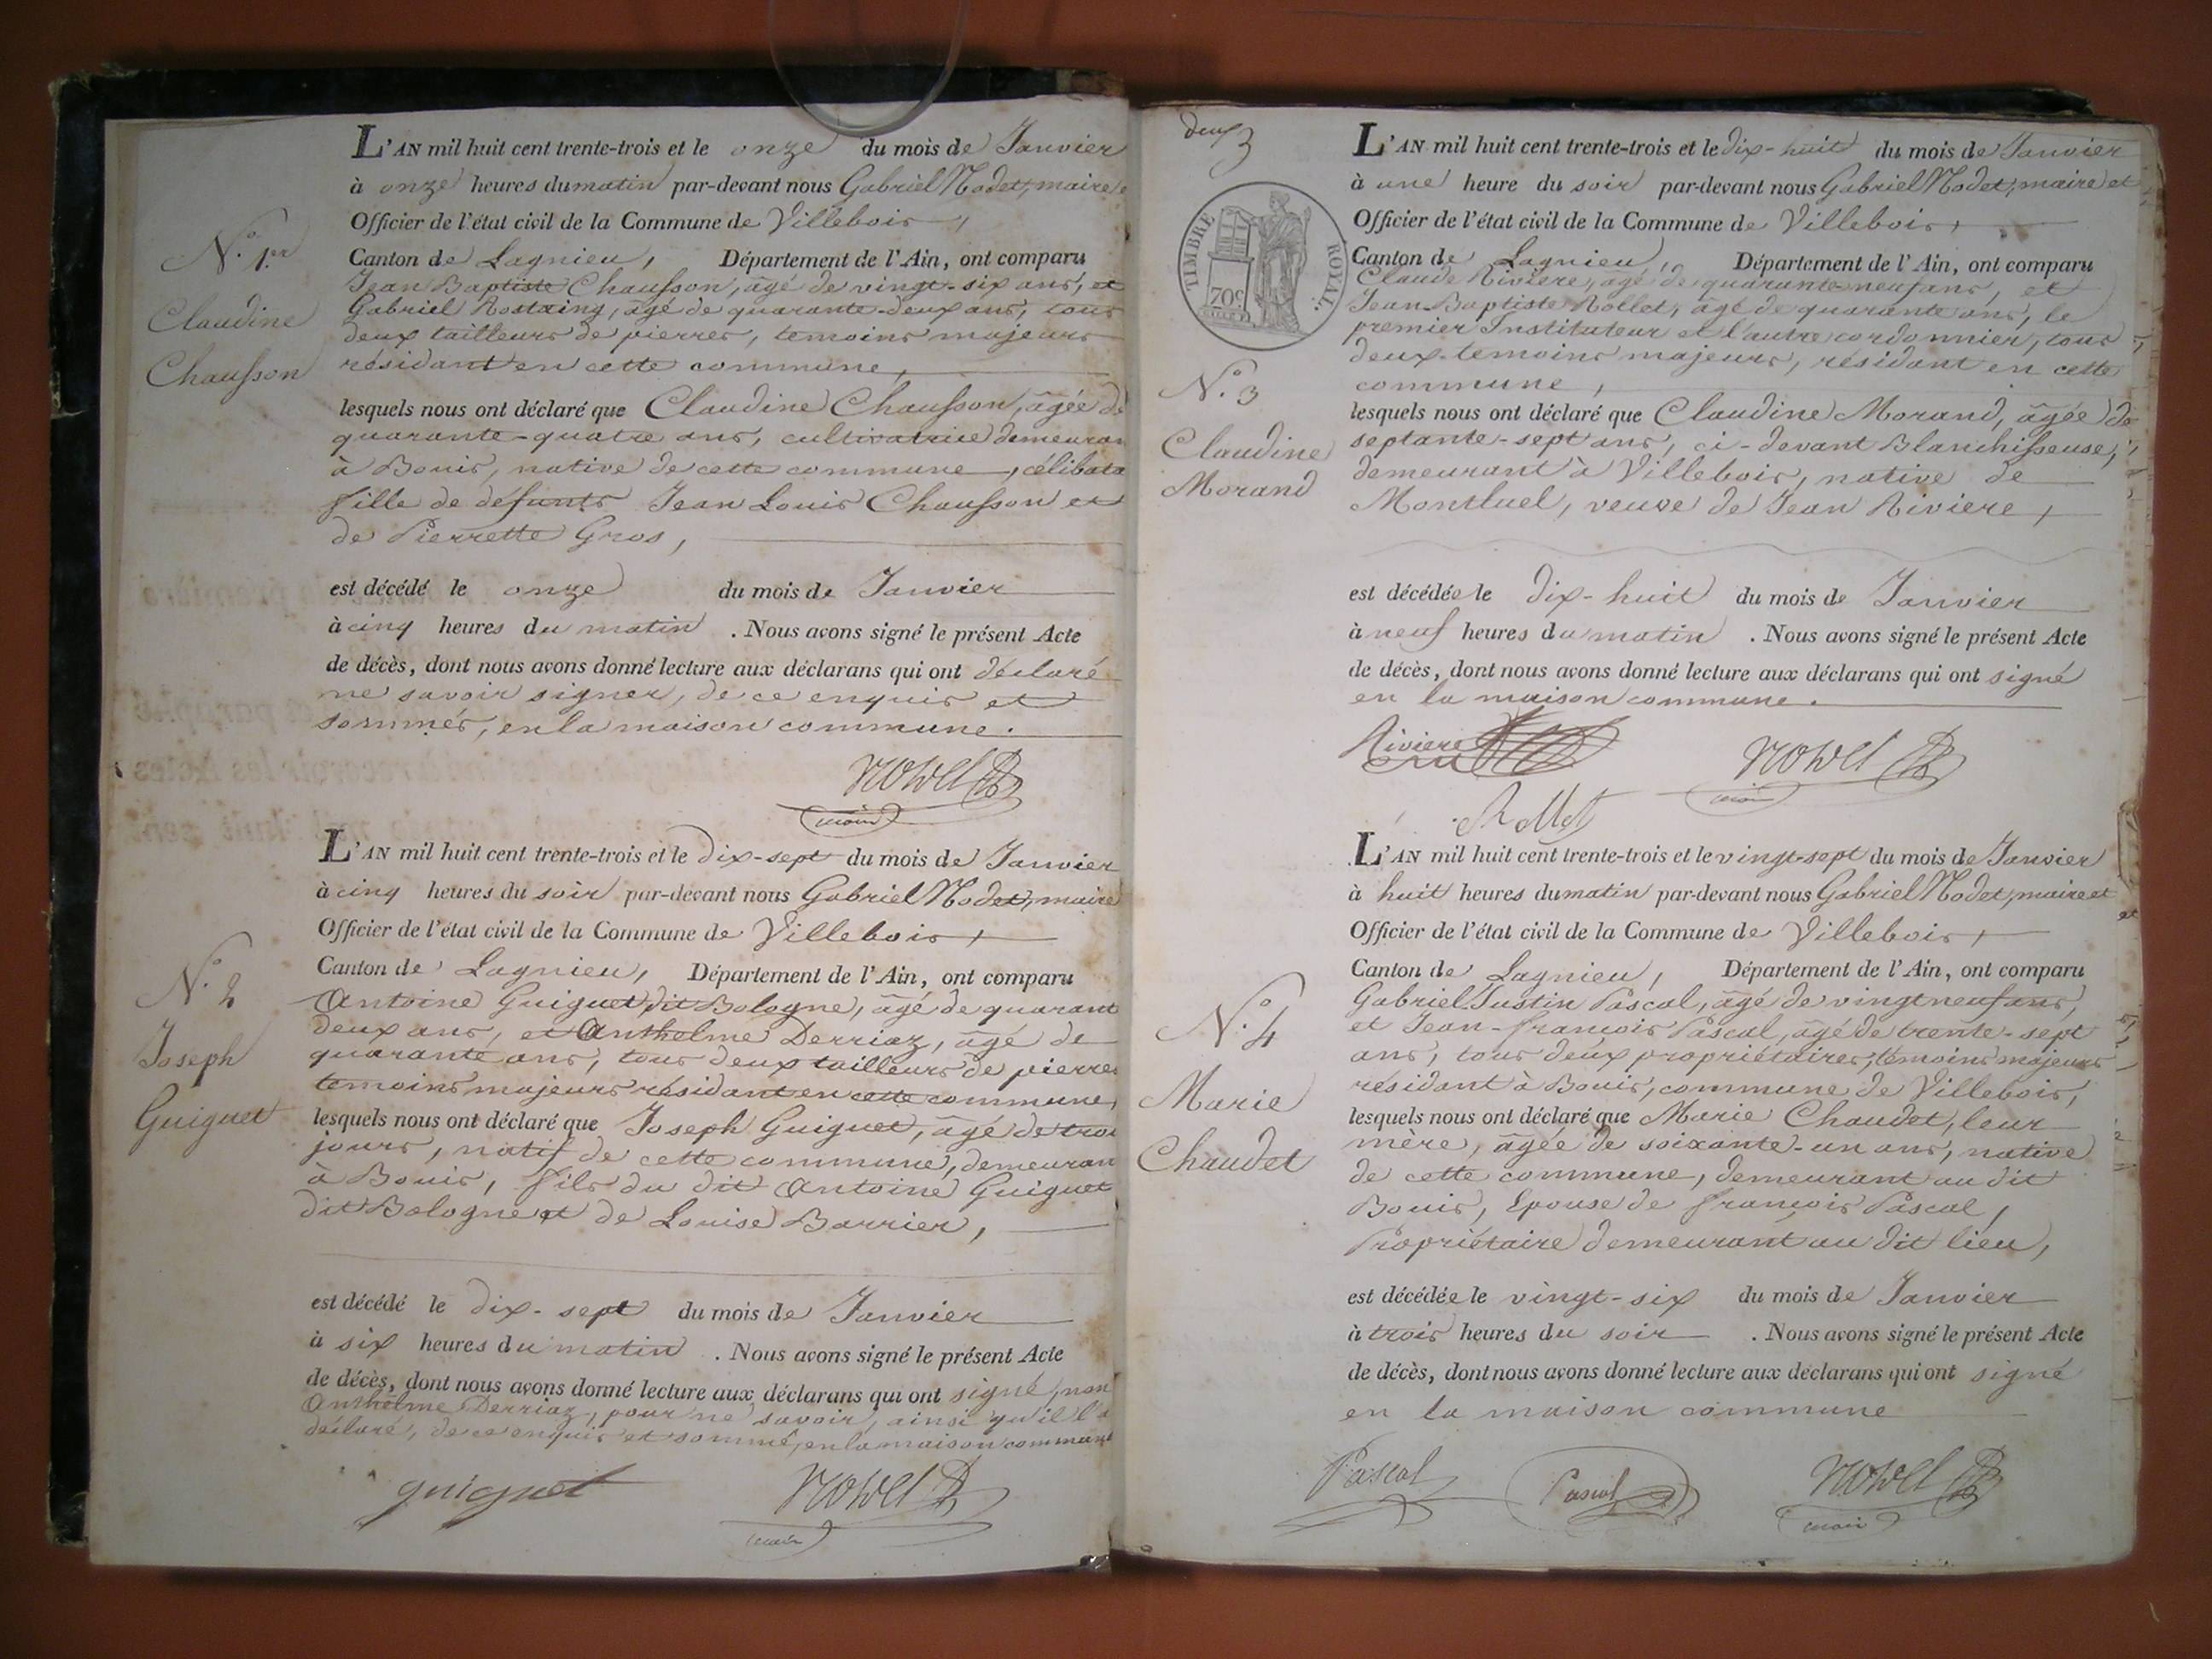 L'AN mil huit cent trente-trois et le onze du mois de Janvier
à onze heures du matin par-devant nous Gabriel Nodet, maire
Officier de l'état civil de la Commune de Villebois,
N.º 1.er
Canton de Lagnieu, Département de l'Ain, ont comparu
Jean Baptiste Chausson, âgé de vingt-six ans, et
Gabriel Rostaing, âgé de quarante-deux ans, tous
Claudine
deux tailleurs de pierres, temoins majeurs
Chausson
résidant en cette commune,
lesquels nous ont déclaré que Claudine Chausson, âgée de
quarante-quatre ans, cultivatrice demeuran
à Bouis, native de cette commune, célibata
fille de defunts Jean Louis Chausson et
de Pierrette Gros,
est décédé le onze du mois de Janvier
à cinq heures du matin . Nous avons signé le présent Acte
de décès, dont nous avons donné lecture aux déclarans qui ont déclaré
ne savoir signer, de ce enquis et
sommés, en la maison commune.
maire
L'AN mil huit cent trente-trois et le dix-sept du mois de Janvier
à cinq heures du soir par-devant nous Gabriel Nodet, maire
Officier de l'état civil de la Commune de Villebois,
N.º 2
Canton de Lagnieu, Département de l'Ain, ont comparu
Antoine Guiguet dit Bologne, âgé de quarant
deux ans, et Anthelme Derriaz, âgé de
Joseph
quarante ans, tous deux tailleurs de pierres
temoins majeurs résidant en cette commune,
Guiguet
lesquels nous ont déclaré que Joseph Guiguet, âgé de troi
jours, natif de cette commune, demeuran
à Bouis, fils du dit Antoine Guiguet
dit Bologne et de Louise Barrier,
est décédé le dix-sept du mois de Janvier
à six heures du matin . Nous avons signé le présent Acte
de décès, dont nous avons donné lecture aux déclarans qui ont signé, non
Anthelme Derriaz, pour ne savoir, ainsi qu'il l'a
déclaré, de ce enquis et sommé, en la maison commune
guiguet
maire
deux
L'AN mil huit cent trente-trois et le dix-huit du mois de Janvier
à une heure du soir par-devant nous Gabriel Nodet, maire et
TIMBRE ROYAL
70c
Officier de l'état civil de la Commune de Villebois,
Canton de Lagnieu, Département de l'Ain, ont comparu
Claude Riviere, âgé de quarante-neuf ans, et
Jean-Baptiste Rollet, âgé de quarante ans, le
premier Instituteur et l'autre cordonnier, tous
deux temoins majeurs, résidant en cette
N.º 3
commune,
lesquels nous ont déclaré que Claudine Morand, âgée de
Claudine
septante-sept ans, ci-devant Blanchisseuse,
demeurant à Villebois, native de
Morand
Montluel, veuve de Jean Riviere,
est décédée le dix-huit du mois de Janvier
à neuf heures du matin . Nous avons signé le présent Acte
de décès, dont nous avons donné lecture aux déclarans qui ont signé
en la maison commune.
Riviere
maire
Rollet
L'AN mil huit cent trente-trois et le vingt-sept du mois de Janvier
à huit heures du matin par-devant nous Gabriel Nodet, maire et
Officier de l'état civil de la Commune de Villebois,
Canton de Lagnieu, Département de l'Ain, ont comparu
Gabriel Justin Pascal, âgé de vingt neuf ans,
N.º 4
et Jean-françois Pascal, âgé de trente-sept
ans, tous deux propriétaires, temoins majeurs
Marie
résidant à Bouis, commune de Villebois,
lesquels nous ont déclaré que Marie Chaudet, leur
Chaudet
mère, âgée de soixante-un ans, native
de cette commune, demeurant au dit
Bouis, Epouse de françois Pascal,
Propriétaire demeurant au dit lieu,
est décédée le vingt-six du mois de Janvier
à trois heures du soir . Nous avons signé le présent Acte
de décès, dont nous avons donné lecture aux déclarans qui ont signé
en la maison commune
Pascal Pascal
maire